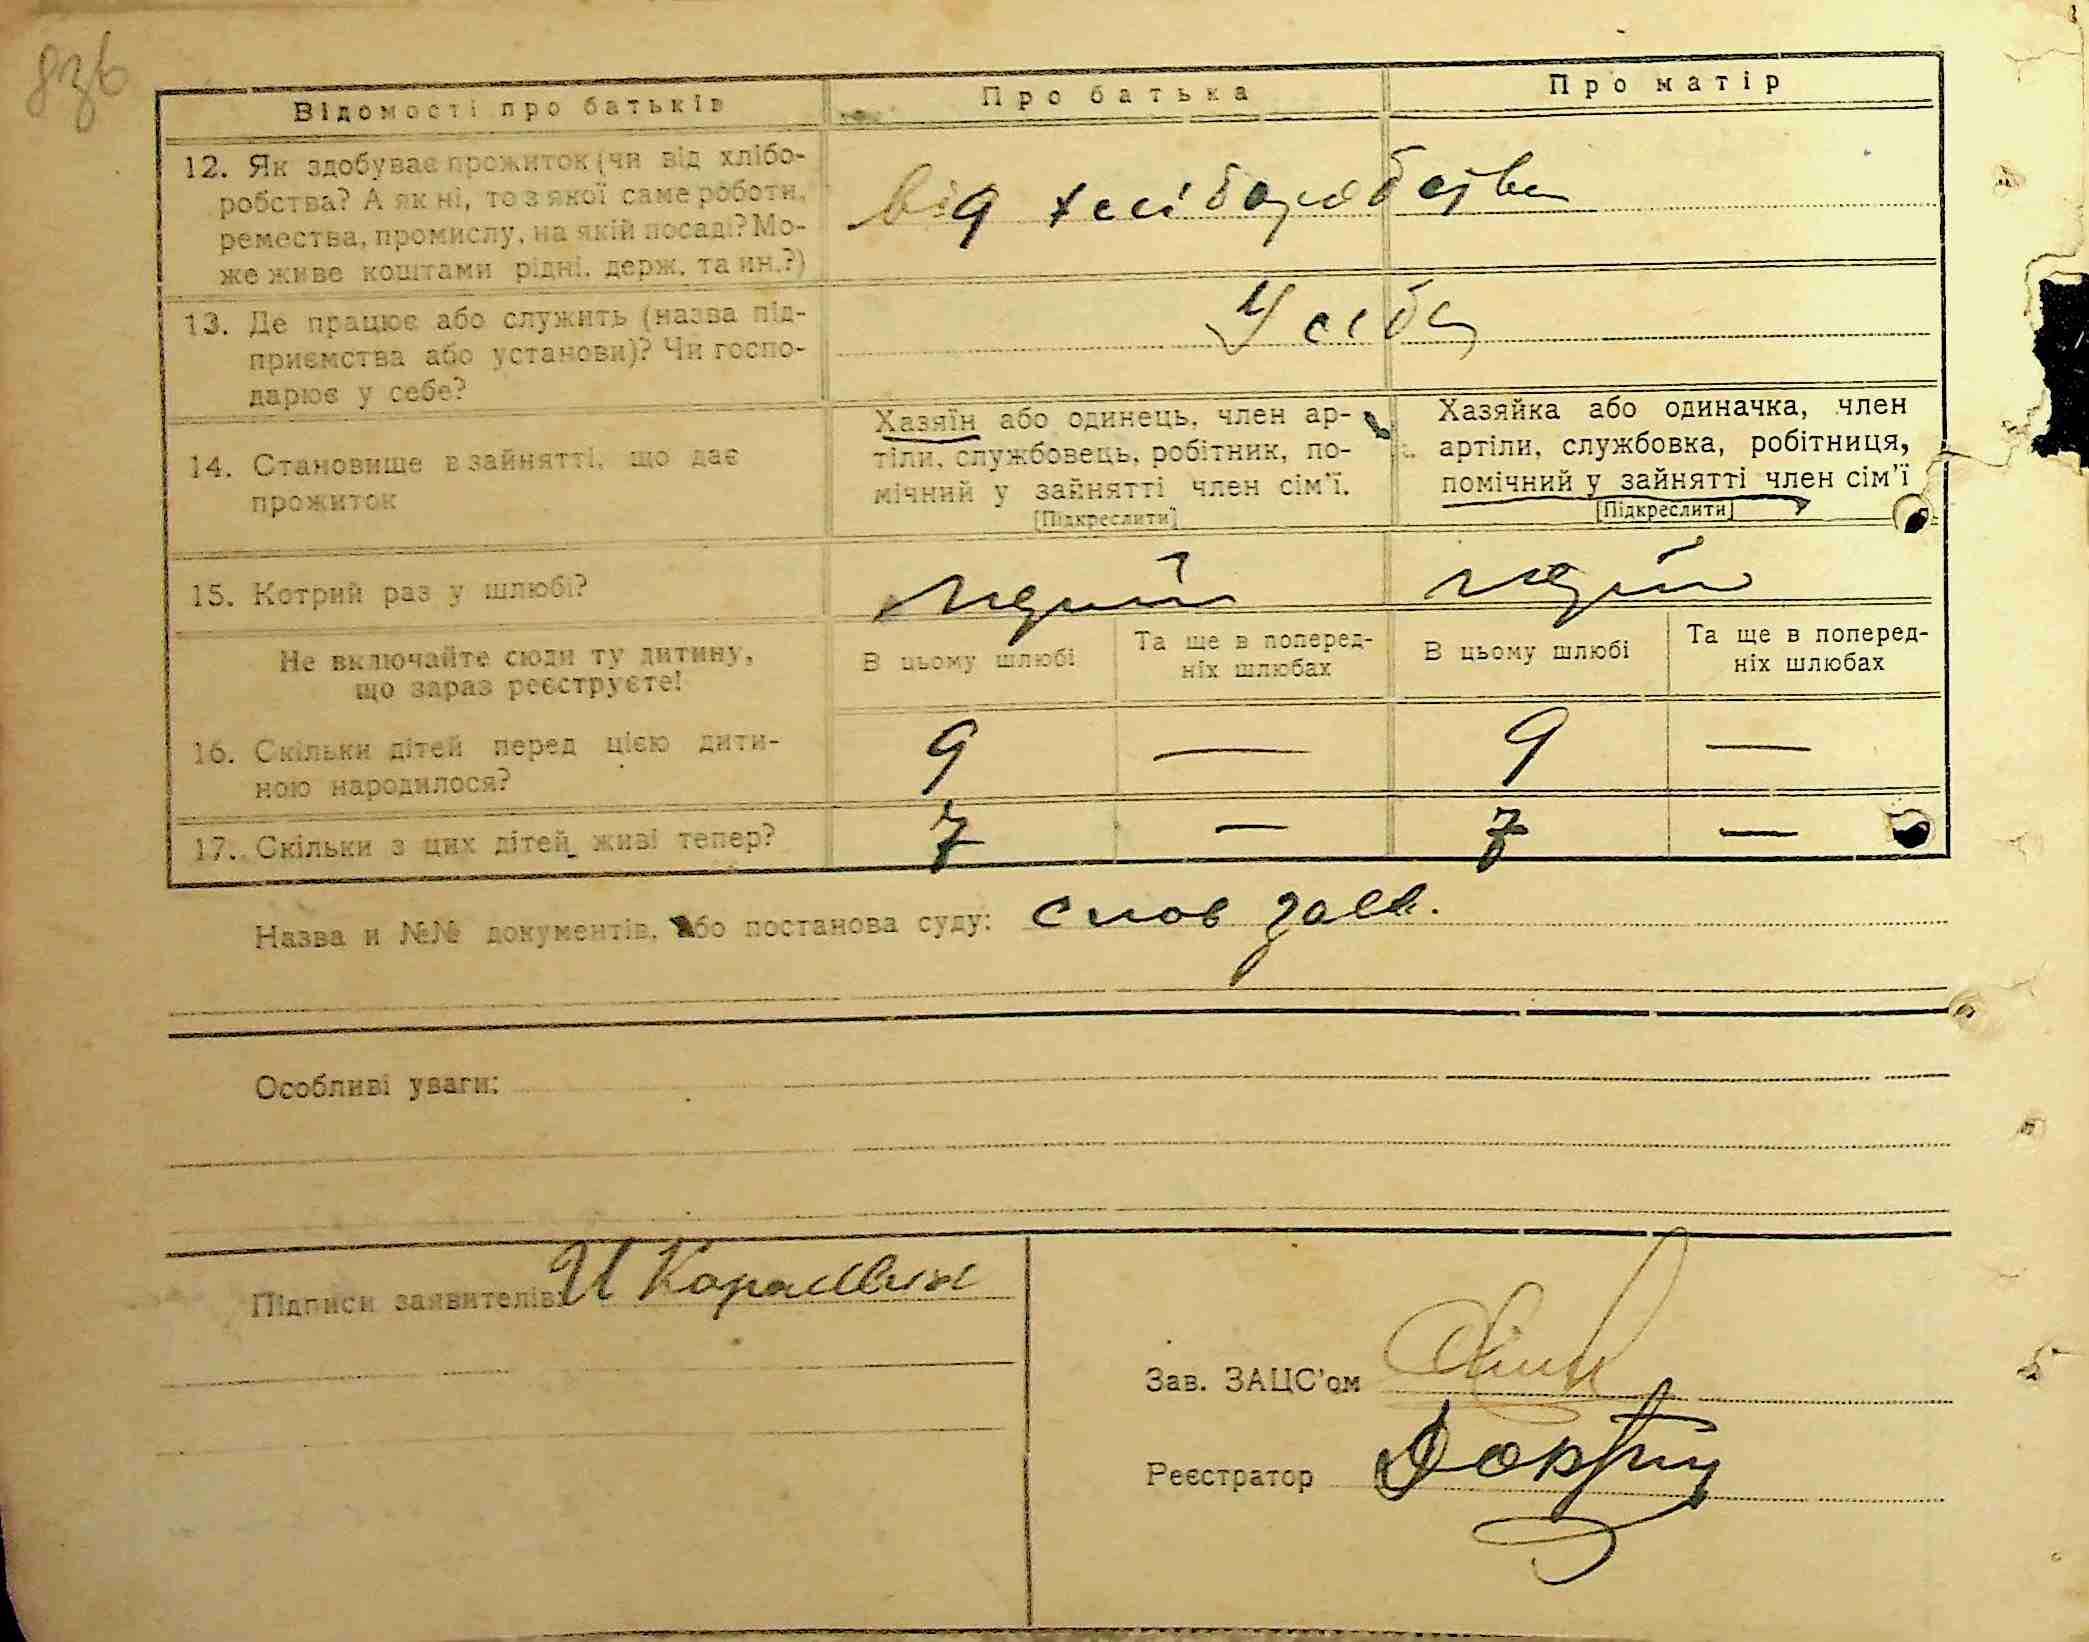 Відомості про батьків
Про батька
Про матір
12. Як здобуває прожиток (чи від хлібо-
робства? А як ні, то з якої саме роботи,
ремества, промислу, на якій посаді? Мо-
же живе коштами рідні, держ. та ин.?)
від хліборобства
13. Де працює або служить (назва під-
приємства або установи)? Чи госпо-
дарює у себе?
У себе
14. Становище в зайнятті, що дає
прожиток
Хазяїн або одинець, член ар-
тіли, службовець, робітник, по-
мічний у зайнятті член сім'ї.
[Підкреслити]
Хазяйка або одиначка, член
артіли, службовка, робітниця,
помічний у зайнятті член сім'ї
[Підкреслити]
15. Котрий раз у шлюбі?
Не включайте сюди ту дитину,
що зараз реєструєте!
В цьому шлюбі
Та ще в поперед-
ніх шлюбах
В цьому шлюбі
Та ще в поперед-
ніх шлюбах
16. Скільки дітей перед цією дити-
ною народилося?
9 — 9 —
17. Скільки з цих дітей живі тепер?
7 — 7 —
Назва и №№ документів, або постанова суду: слов заяв.
Особливі уваги:
Підписи заявителів: И
Зав. ЗАЦС'ом
Реєстратор